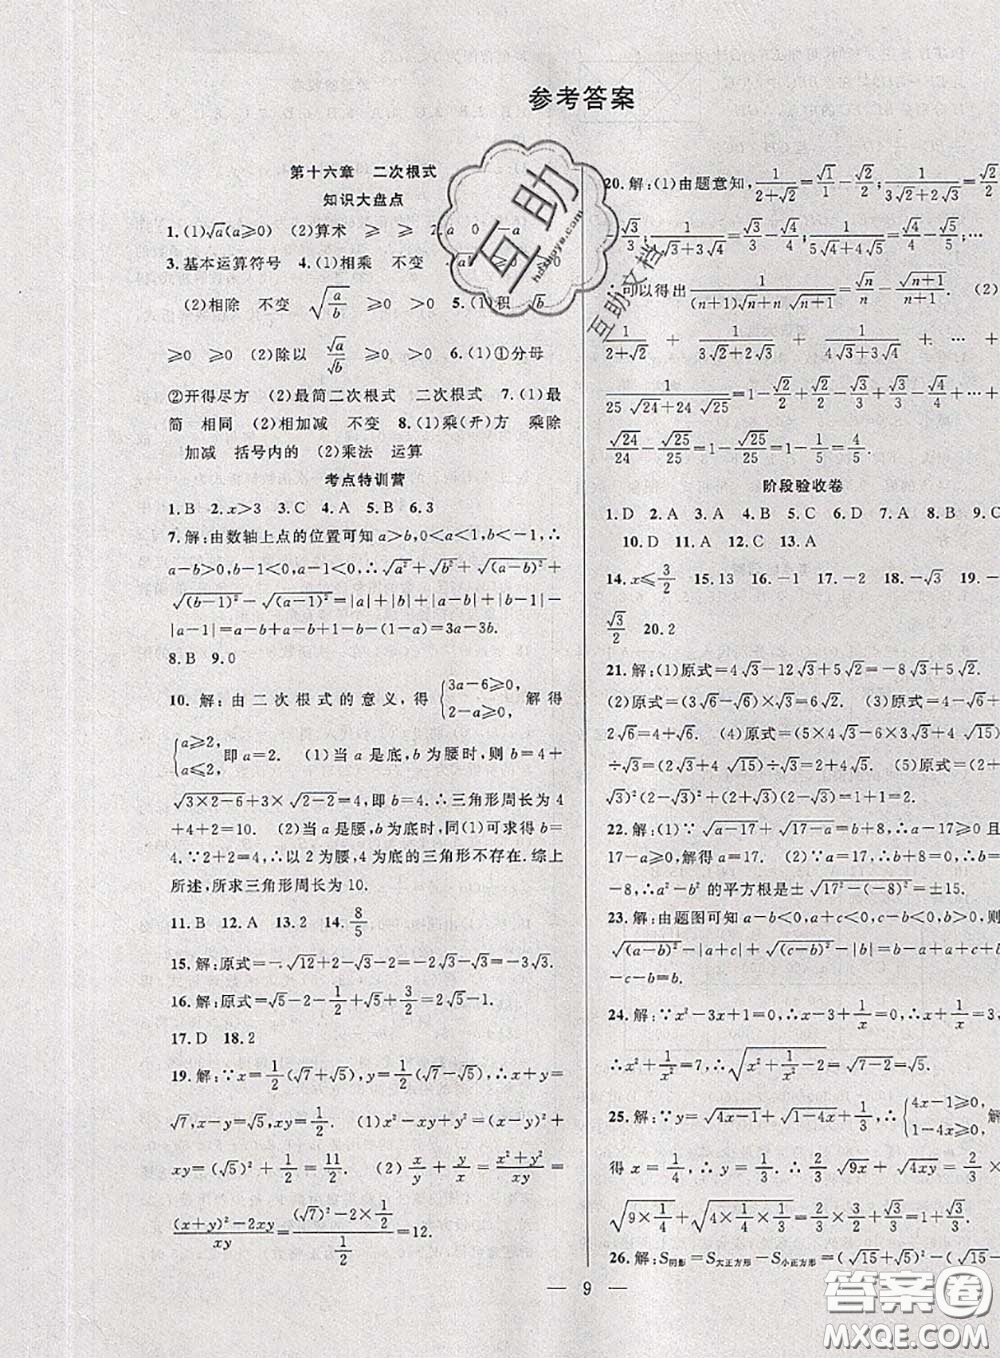 参考答案
第十六章 二次根式
知识大盘点
1.(1)√a(a≥0) (2)算术 ≥ ≥ 2.a 0 -a
3.基本运算符号 4.(1)相乘 不变 ≥0 ≥0
(2)相除 不变 √(a/b) ≥0 >0 5.(1)积 √b
≥0 ≥0 (2)除以 √a/√b ≥0 >0 6.(1)①分母
②开得尽方 (2)最简二次根式 二次根式 7.(1)最
简 相同 (2)相加减 不变 8.(1)乘(开)方 乘除
加减 括号内的 (2)乘法 运算
考点特训营
1.B 2.x>3 3.C 4.A 5.B 6.3
7.解:由数轴上点的位置可知a>b,0<a<1,b<-1,∴
a-b>0,b-1<0,a-1<0,∴√a²+√b²+√(a-b)²+
√(b-1)²-√(a-1)²=|a|+|b|+|a-b|+|b-1|-
|a-1|=a-b+a-b+1-b-(1-a)=3a-3b.
8.B 9.0
10.解:由二次根式的意义,得{3a-6≥0, 2-a≥0, 解得
{a≥2, a≤2, 即a=2. (1)当a是底,b为腰时,则b=4+
√(3×2-6)+3×√(2-2)=4,即b=4.∴三角形周长为4+
4+2=10. (2)当a是腰,b为底时,同(1)可求得b=
4.∵2+2=4,∴以2为腰,4为底的三角形不存在.综上
所述,所求三角形周长为10.
11.B 12.A 13.2 14.8/5
15.解:原式=-√12+2-√3-2=-2√3-√3=-3√3.
16.解:原式=√5-2-1/2+√5+3/2=2√5-1.
17.D 18.2
19.解:∵x=1/2(√7+√5),y=1/2(√7-√5),∴x+y=
√7,x-y=√5,xy=1/2. (1)x²-xy+y²=(x-y)²+
xy=(√5)²+1/2=11/2. (2)x/y+y/x=(x²+y²)/xy=
((x+y)²-2xy)/xy=((√7)²-2×1/2)/(1/2)=12.
20.解:(1)由题意知,1/(2+√2)=√1/1-√2/2;1/(3√2+2√3)=√2/2
-√3/3;1/(4√3+3√4)=√3/3-√4/4;1/(5√4+4√5)=√4/4-√5/5;…
∴可以得出1/((n+1)√n+n√(n+1))=√n/n-√(n+1)/(n+1). (2)
1/(2+√2)+1/(3√2+2√3)+1/(4√3+3√4)+…+
1/(25√24+24√25)=1-√2/2+√2/2-√3/3+√3/3-√4/4+…+
√24/24-√25/25=1-√25/25=1-1/5=4/5.
阶段验收卷
1.D 2.A 3.A 4.B 5.C 6.D 7.A 8.B 9.C
10.D 11.A 12.C 13.A
14.x≤3/2 15.13 16.-1 17.-2 18.-√3 19.-
√3/2 20.2
21.解:(1)原式=4√3-12√3+5√2=-8√3+5√2.
(2)原式=(3√6-√6)×√3=6√2. (3)原式=4-√6+
2√6=4+√6. (4)原式=(5×4√3-6×3√3+4√15)
÷√3=(2√3+4√15)÷√3=2+4√5. (5)原式=(2+
√3)²(2-√3)²=(4-3)²+1=2.
22.解:(1)∵√(a-17)+√(17-a)=b+8,∴a-17≥0且
17-a≥0,解得a=17. (2)∵a=17,∴b+8=0,∴b=
-8,∴a²-b²的平方根是±√(17²-(-8)²)=±15.
23.解:由题图可知a-b<0,a+c<0,c-b<0,b>0,则
√(a-b)²-|a+c|+√(c-b)²-|b|=b-a+a+c+b-
c-b=b.
24.解:∵x²-3x+1=0,∴x-3+1/x=0,∴x+1/x=3,
∴x²+1/x²=7,∴√(x²+1/x²-2)=√(7-2)=√5.
25.解:∵y=√(4x-1)+√(1-4x)+√3/3,∴{4x-1≥0, 1-4x≥0,
得x=1/4,∴y=√3/3.∴√9x+√4xy=
√(9×1/4)+√(4×1/4×√3/3)
26.解:S阴影=S大正方形-S小正方形=(√15+√5)²-(√15
9
互助
hzshuye.com
互助文档
答案圈
MXQE.COM